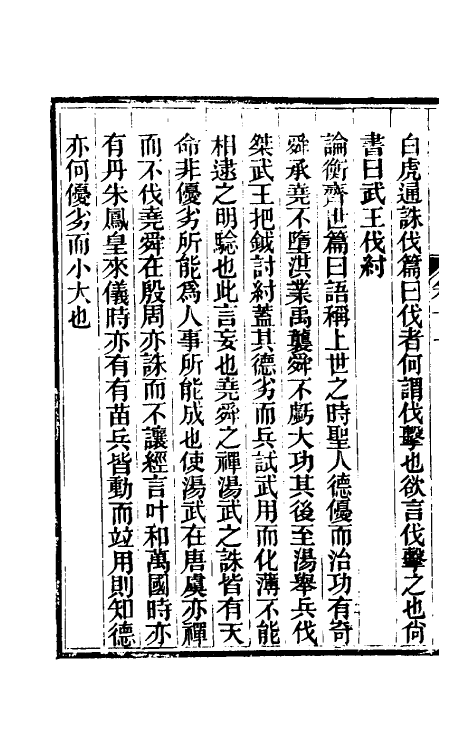 白虎通誅伐篇曰伐者何謂伐擊也欲言伐擊之也尙
書曰武王伐紂
論衡齊世篇曰語稱上世之時聖人德優而治功有奇
舜承堯不墮洪業禹襲舜不虧大功其後至湯舉兵伐
桀武王把鉞討紂蓋其德劣而兵試武用而化薄不能
相逮之明驗也此言妄也堯舜之禪湯武之誅皆有天
命非優劣所能爲人事所能成也使湯武在唐虞亦禪
而不伐堯舜在殷周亦誅而不讓經言叶和萬國時亦
有丹朱鳳皇來儀時亦有有苗兵皆動而竝用則知德
亦何優劣而小大也